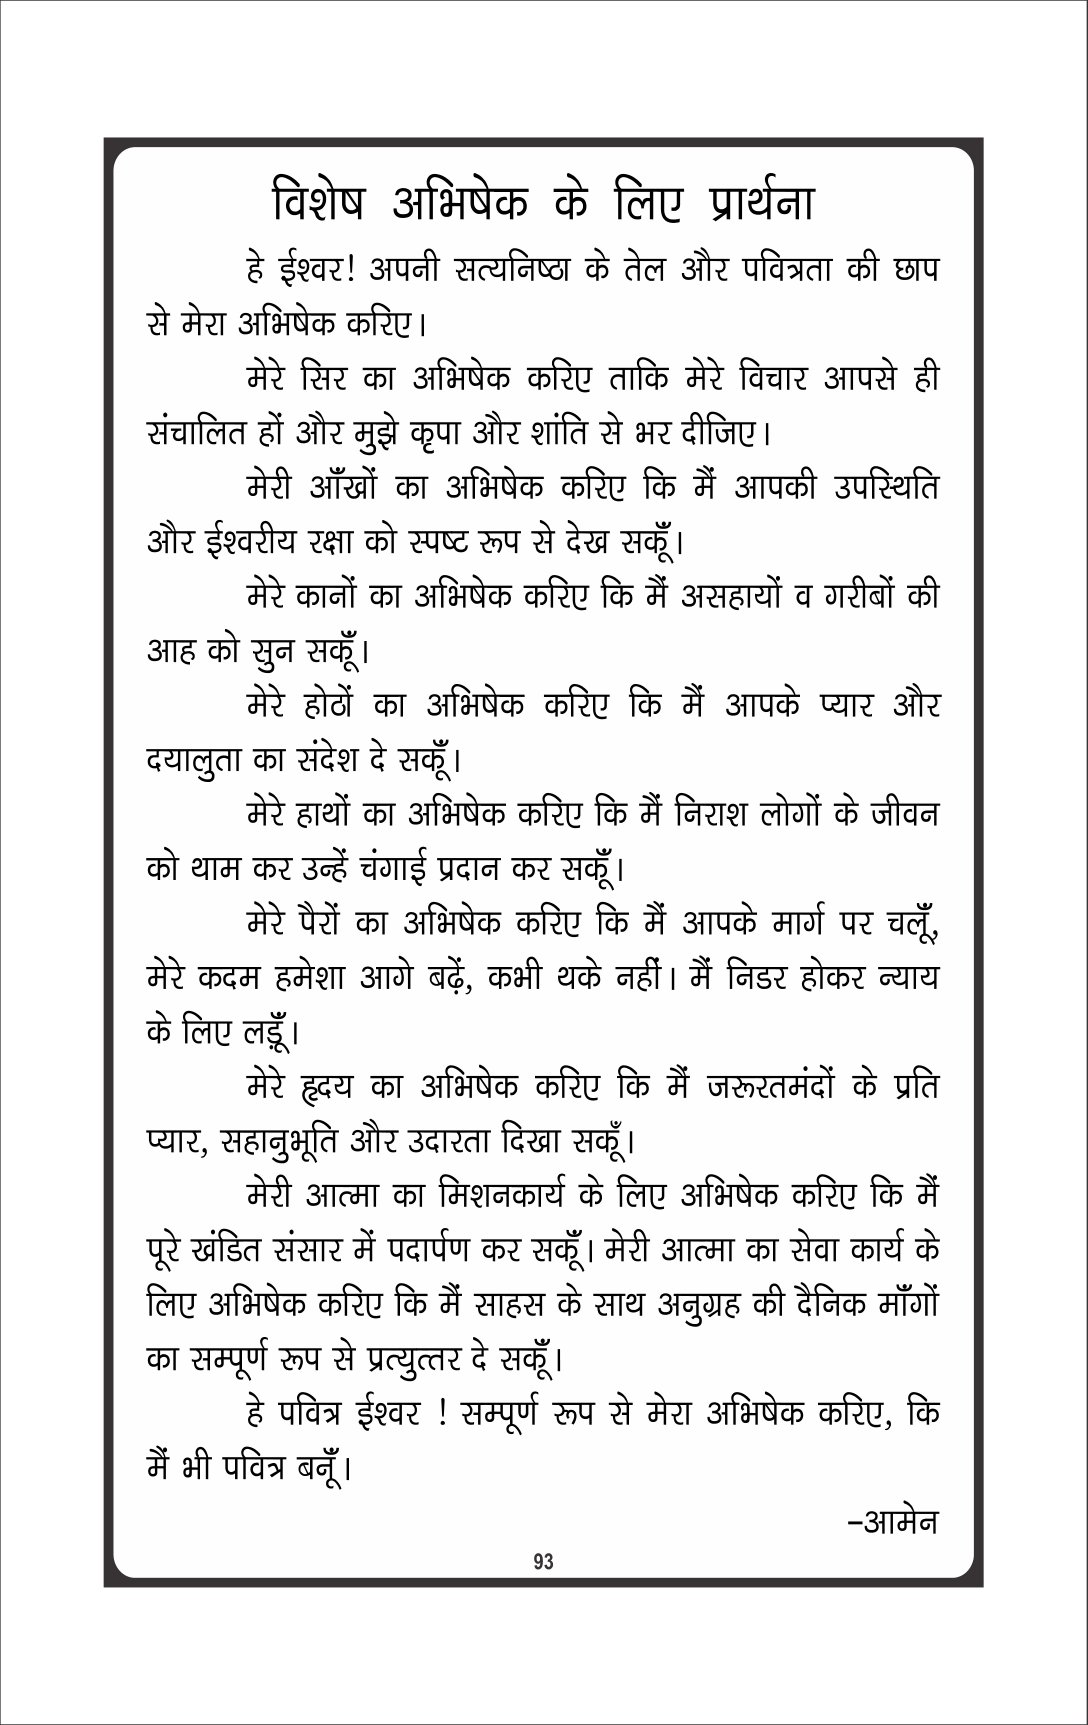 विशेष अभिषेक के लिए प्रार्थना
हे ईश्वर! अपनी सत्यनिष्ठा के तेल और पवित्रता की छाप
से मेरा अभिषेक करिए।
मेरे सिर का अभिषेक करिए ताकि मेरे विचार आपसे ही
संचालित हों और मुझे कृपा और शांति से भर दीजिए।
मेरी आँखों का अभिषेक करिए कि मैं आपकी उपस्थिति
और ईश्वरीय रक्षा को स्पष्ट रूप से देख सकूँ।
मेरे कानों का अभिषेक करिए कि मैं असहायों व गरीबों की
आह को सुन सकूँ।
मेरे होठों का अभिषेक करिए कि मैं आपके प्यार और
दयालुता का संदेश दे सकूँ।
मेरे हाथों का अभिषेक करिए कि मैं निराश लोगों के जीवन
को थाम कर उन्हें चंगाई प्रदान कर सकूँ।
मेरे पैरों का अभिषेक करिए कि मैं आपके मार्ग पर चलूँ,
मेरे कदम हमेशा आगे बढ़ें, कभी थके नहीं। मैं निडर होकर न्याय
के लिए लड़ूँ।
मेरे हृदय का अभिषेक करिए कि मैं जरूरतमंदों के प्रति
प्यार, सहानुभूति और उदारता दिखा सकूँ।
मेरी आत्मा का मिशनकार्य के लिए अभिषेक करिए कि मैं
पूरे खंडित संसार में पदार्पण कर सकूँ। मेरी आत्मा का सेवा कार्य के
लिए अभिषेक करिए कि मैं साहस के साथ अनुग्रह की दैनिक माँगों
का सम्पूर्ण रूप से प्रत्युत्तर दे सकूँ।
हे पवित्र ईश्वर ! सम्पूर्ण रूप से मेरा अभिषेक करिए, कि
मैं भी पवित्र बनूँ।
–आमेन
93